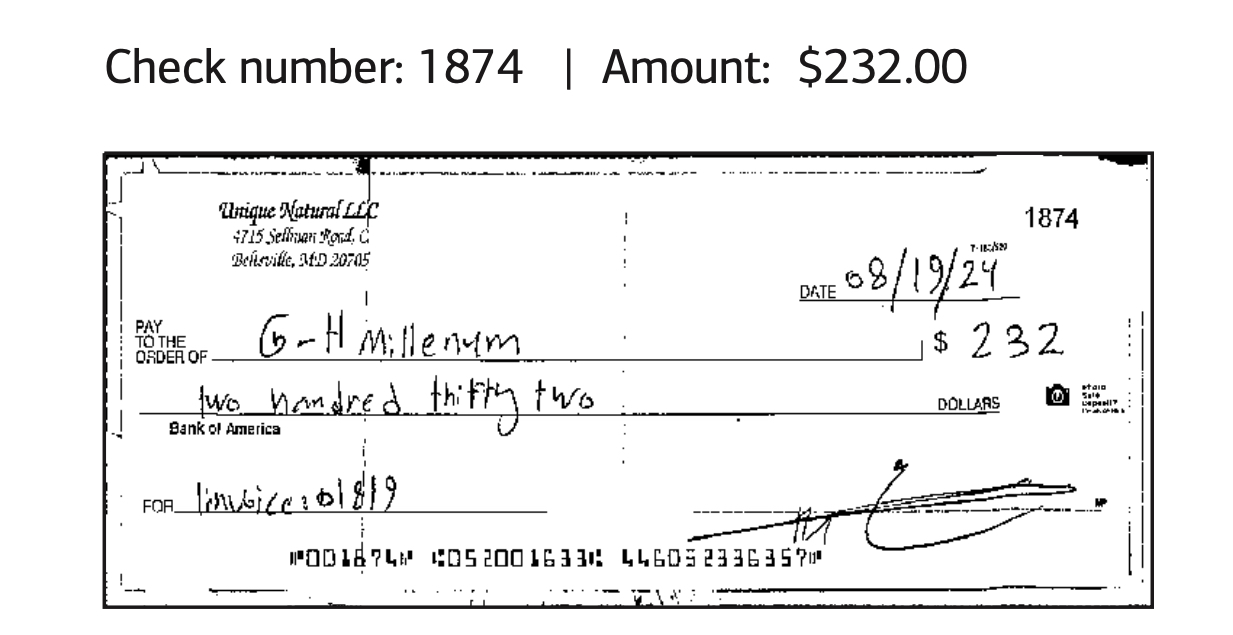 Check number: 1874 | Amount: $232.00
Unique Natural LLC
1874
4715 Sellman Road, C
Beltsville, MD 20705
DATE 08/19/24
PAY
TO THE
ORDER OF G-H Millenum $ 232
two hundred thifty two DOLLARS
Bank of America
FOR Invoice: 01819
MP
⑈001874⑈ ⑆052001633⑆ 446052336357⑈